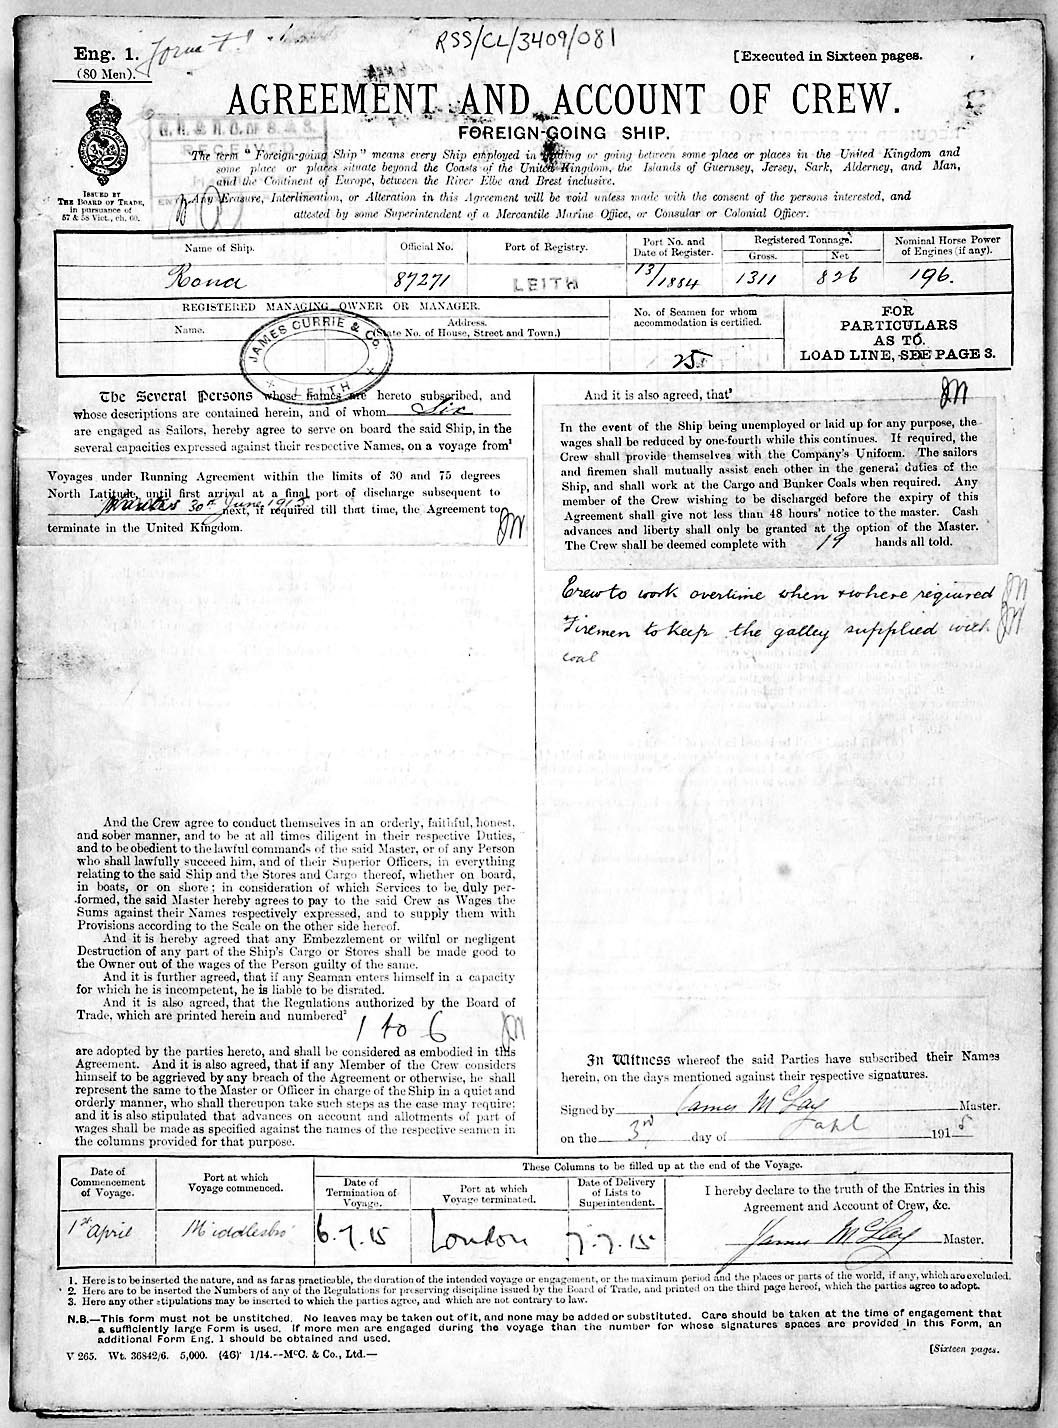 Eng. 1.
(80 Men).
RSS/CL/3409/081
[Executed in Sixteen pages.
AGREEMENT AND ACCOUNT OF CREW.
FOREIGN-GOING SHIP.
RECEIVED
ISSUED BY
THE BOARD OF TRADE,
in pursuance of
57 & 58 Vict., ch. 60.
The term "Foreign-going Ship" means every Ship employed in trading or going between some place or places in the United Kingdom and
some place or places situate beyond the Coasts of the United Kingdom, the Islands of Guernsey, Jersey, Sark, Alderney, and Man,
and the Continent of Europe, between the River Elbe and Brest inclusive.
Any Erasure, Interlineation, or Alteration in this Agreement will be void unless made with the consent of the persons interested, and
attested by some Superintendent of a Mercantile Marine Office, or Consular or Colonial Officer.
Name of Ship. Official No. Port of Registry. Port No. and Date of Register. Registered Tonnage. Gross. Net Nominal Horse Power of Engines (if any).
Rona 87271 LEITH 13/1884 1311 826 196.
REGISTERED MANAGING OWNER OR MANAGER.
Name. Address.
(State No. of House, Street and Town.)
JAMES CURRIE & Co. LEITH
No. of Seamen for whom
accommodation is certified.
25
FOR
PARTICULARS
AS TO
LOAD LINE, SEE PAGE 3.
The Several Persons whose names are hereto subscribed, and
whose descriptions are contained herein, and of whom Six
are engaged as Sailors, hereby agree to serve on board the said Ship, in the
several capacities expressed against their respective Names, on a voyage from¹
Voyages under Running Agreement within the limits of 30 and 75 degrees
North Latitude, until first arrival at a final port of discharge subsequent to
30th June 1915 next, if required till that time, the Agreement to
terminate in the United Kingdom.
JM
And the Crew agree to conduct themselves in an orderly, faithful, honest,
and sober manner, and to be at all times diligent in their respective Duties,
and to be obedient to the lawful commands of the said Master, or of any Person
who shall lawfully succeed him, and of their Superior Officers, in everything
relating to the said Ship and the Stores and Cargo thereof, whether on board,
in boats, or on shore; in consideration of which Services to be duly per-
formed, the said Master hereby agrees to pay to the said Crew as Wages the
Sums against their Names respectively expressed, and to supply them with
Provisions according to the Scale on the other side hereof.
And it is hereby agreed that any Embezzlement or wilful or negligent
Destruction of any part of the Ship's Cargo or Stores shall be made good to
the Owner out of the wages of the Person guilty of the same.
And it is further agreed, that if any Seaman enters himself in a capacity
for which he is incompetent, he is liable to be disrated.
And it is also agreed, that the Regulations authorized by the Board of
Trade, which are printed herein and numbered²
1 to 6 JM
are adopted by the parties hereto, and shall be considered as embodied in this
Agreement. And it is also agreed, that if any Member of the Crew considers
himself to be aggrieved by any breach of the Agreement or otherwise, he shall
represent the same to the Master or Officer in charge of the Ship in a quiet and
orderly manner, who shall thereupon take such steps as the case may require;
and it is also stipulated that advances on account and allotments of part of
wages shall be made as specified against the names of the respective seamen in
the columns provided for that purpose.
And it is also agreed, that³ JM
In the event of the Ship being unemployed or laid up for any purpose, the
wages shall be reduced by one-fourth while this continues. If required, the
Crew shall provide themselves with the Company's Uniform. The sailors
and firemen shall mutually assist each other in the general duties of the
Ship, and shall work at the Cargo and Bunker Coals when required. Any
member of the Crew wishing to be discharged before the expiry of this
Agreement shall give not less than 48 hours' notice to the master. Cash
advances and liberty shall only be granted at the option of the Master.
The Crew shall be deemed complete with 19 hands all told.
Crew to work overtime when & where required JM
Firemen to keep the galley supplied with JM
coal
In Witness whereof the said Parties have subscribed their Names
herein, on the days mentioned against their respective signatures.
Signed by James McLay Master.
on the 3rd day of Apl 1915
Date of Commencement of Voyage. Port at which Voyage commenced. These Columns to be filled up at the end of the Voyage.
Date of Termination of Voyage. Port at which Voyage terminated. Date of Delivery of Lists to Superintendent.
I hereby declare to the truth of the Entries in this
Agreement and Account of Crew, &c.
1st April Middlesbro' 6.7.15 London 7.7.15 James McLay Master.
1. Here is to be inserted the nature, and as far as practicable, the duration of the intended voyage or engagement, or the maximum period and the places or parts of the world, if any, which are excluded.
2. Here are to be inserted the Numbers of any of the Regulations for preserving discipline issued by the Board of Trade, and printed on the third page hereof, which the parties agree to adopt.
3. Here any other stipulations may be inserted to which the parties agree, and which are not contrary to law.
N.B.—This form must not be unstitched. No leaves may be taken out of it, and none may be added or substituted. Care should be taken at the time of engagement that
a sufficiently large Form is used. If more men are engaged during the voyage than the number for whose signatures spaces are provided in this Form, an
additional Form Eng. 1 should be obtained and used.
V 265. Wt. 36842/6. 5,000. (46) 1/14.—McC. & Co., Ltd.—
[Sixteen pages.